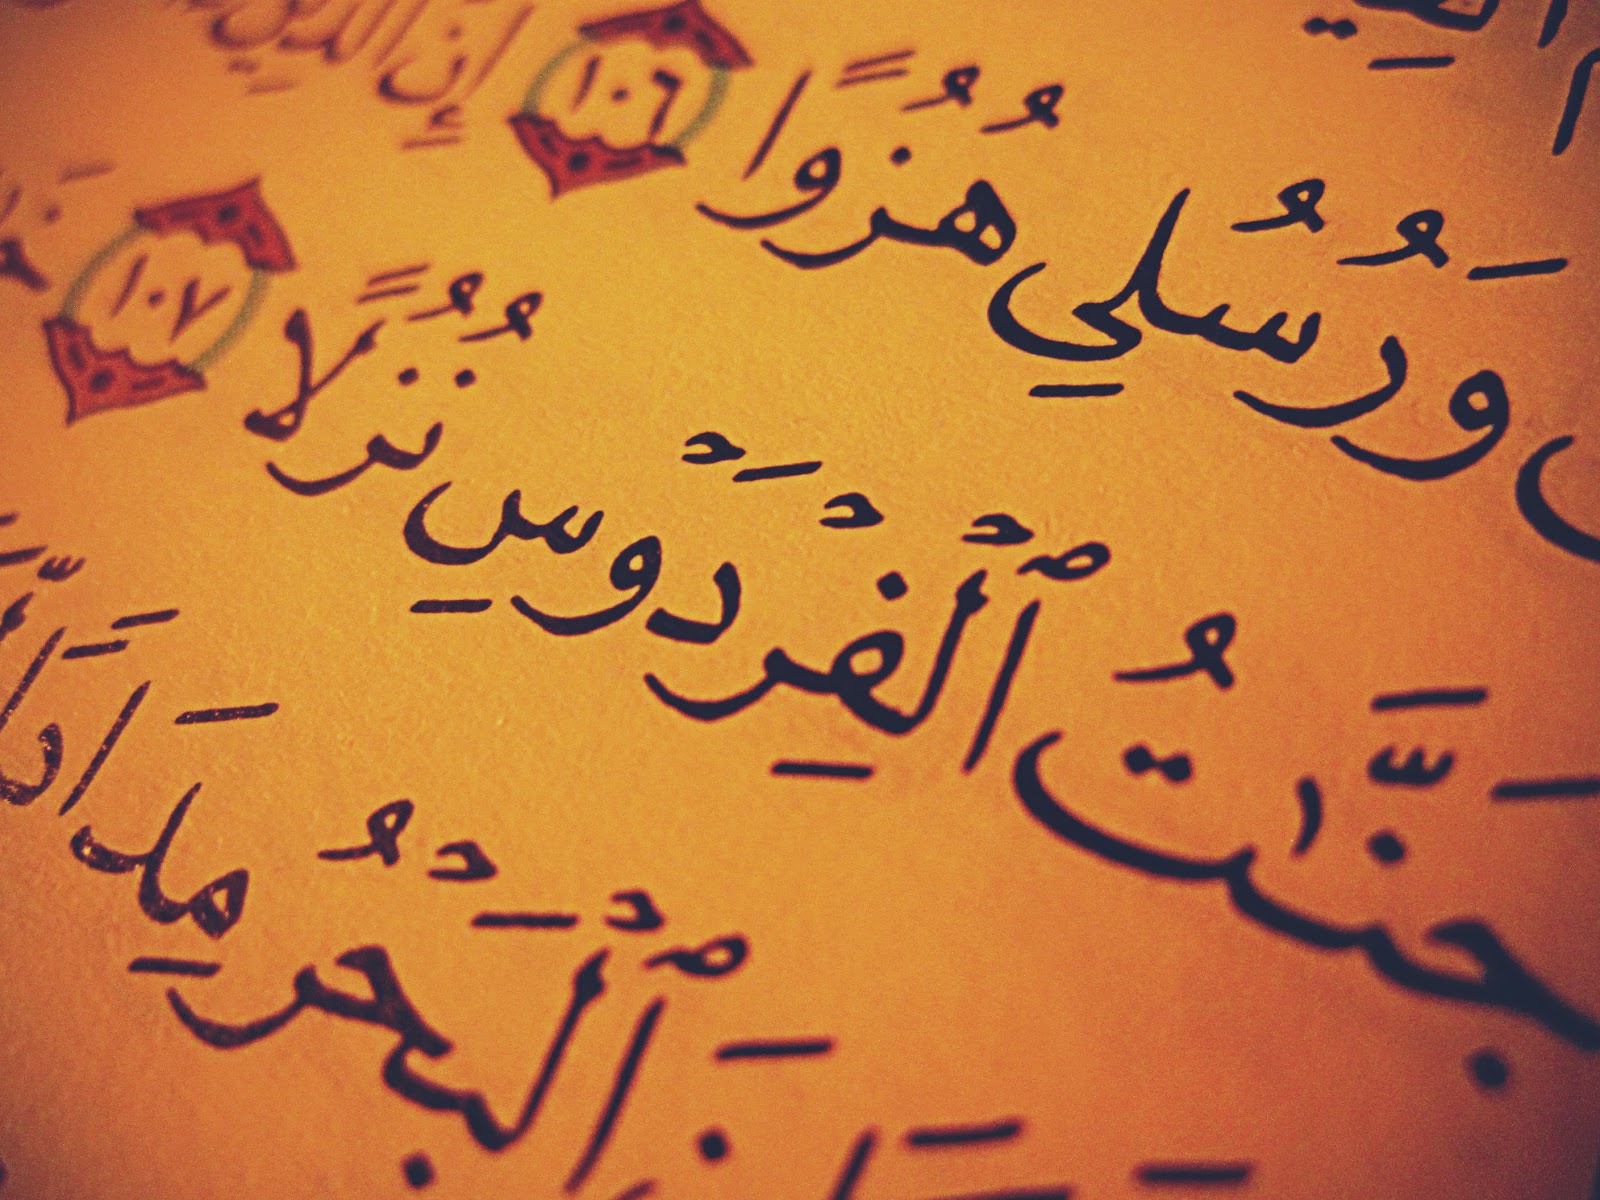 وَرُسُلِي هُزُوًا ١٠٦ إِنَّ ٱلَّذِينَ
جَنَّٰتُ ٱلْفِرْدَوْسِ نُزُلًا ١٠٧
ٱلْبَحْرُ مِدَادًا